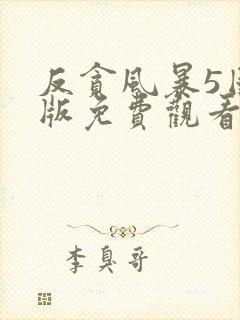 反貪風暴5
版免費觀看
李臭哥